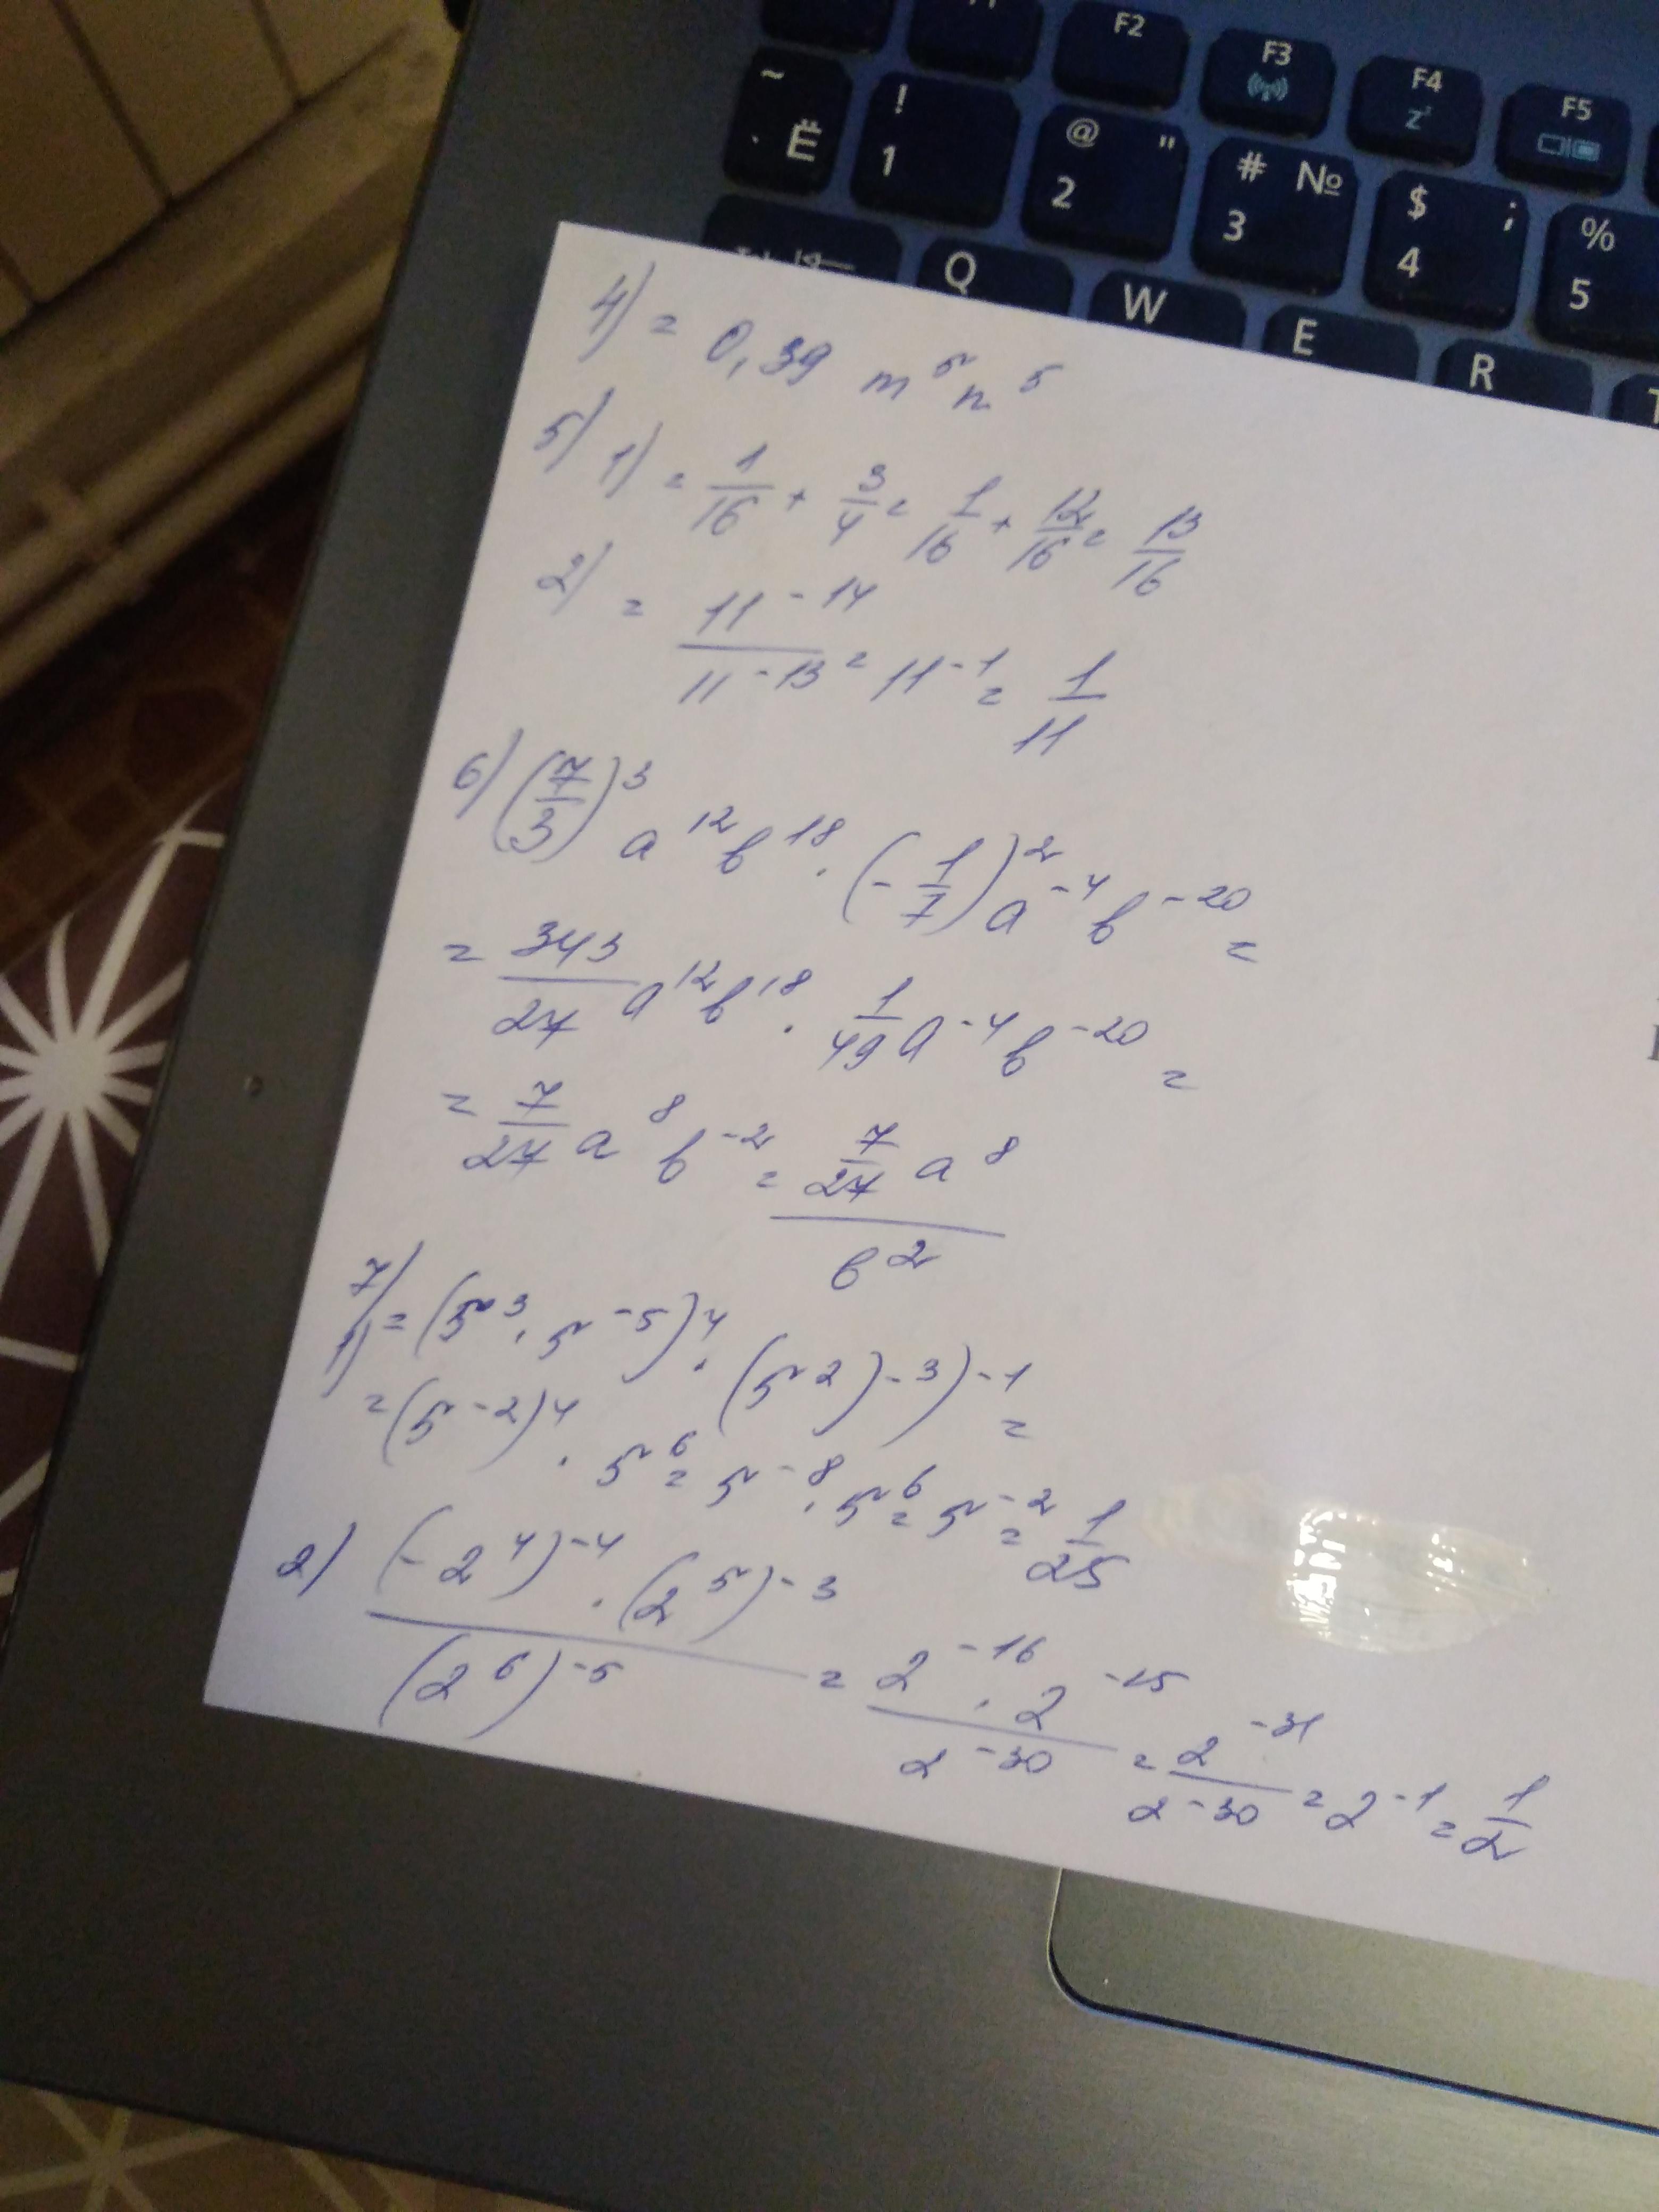 F2
F3
F4
zᶻ
F5
~
Ё
!
1
@ "
2
# №
3
$ ;
4
%
5
Q
W
E
R
4) = 0,39 m⁵n⁵
5) 1) = 1/16 + 3/4 = 1/16 + 12/16 = 13/16
2) = 11⁻¹⁴/11⁻¹³ = 11⁻¹ = 1/11
6) (7/3)³ a¹²b¹⁸ · (-1/7)² a⁻⁴b⁻²⁰ =
= 343/27 a¹²b¹⁸ · 1/49 a⁻⁴b⁻²⁰ =
= 7/27 a⁸b⁻² = 7/27 a⁸ / b²
7)
1) = (5³ · 5⁻⁵)⁴ · (5²)⁻³)⁻¹ =
= (5⁻²)⁴ · 5⁶ = 5⁻⁸ · 5⁶ = 5⁻² = 1/25
2) (-2⁴)⁻⁴ · (2⁵)⁻³ / (2⁶)⁻⁵ = 2⁻¹⁶ · 2⁻¹⁵ / 2⁻³⁰ = 2⁻³¹/2⁻³⁰ = 2⁻¹ = 1/2